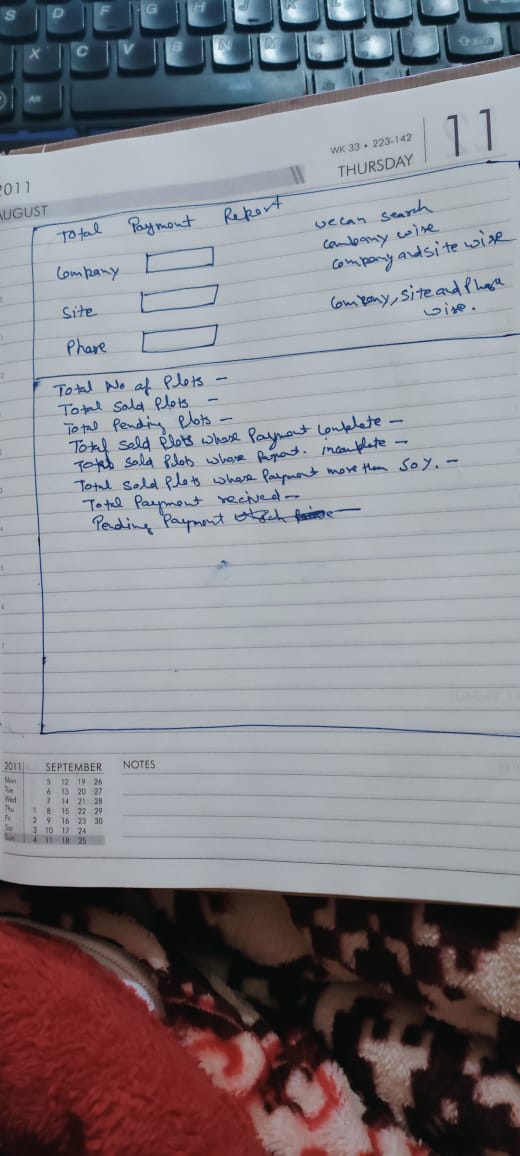 S D F G H J K L
X C V B N M Shift
Alt
2011
AUGUST
WK 33 • 223-142
THURSDAY
11
Total Payment Report
Company
Site
Phase
we can search
company wise
company and site wise
Company, Site and Phase
wise.
Total No of Plots –
Total Sold Plots –
Total Pending Plots –
Total Sold Plots whose Payment Complete –
Total Sold Plots whose Payment. incomplete –
Total Sold Plots whose Payment more then 50%. –
Total Payment recived –
Pending Payment
2011 SEPTEMBER
Mon 5 12 19 26
Tue 6 13 20 27
Wed 7 14 21 28
Thu 1 8 15 22 29
Fri 2 9 16 23 30
Sat 3 10 17 24
Sun 4 11 18 25
NOTES